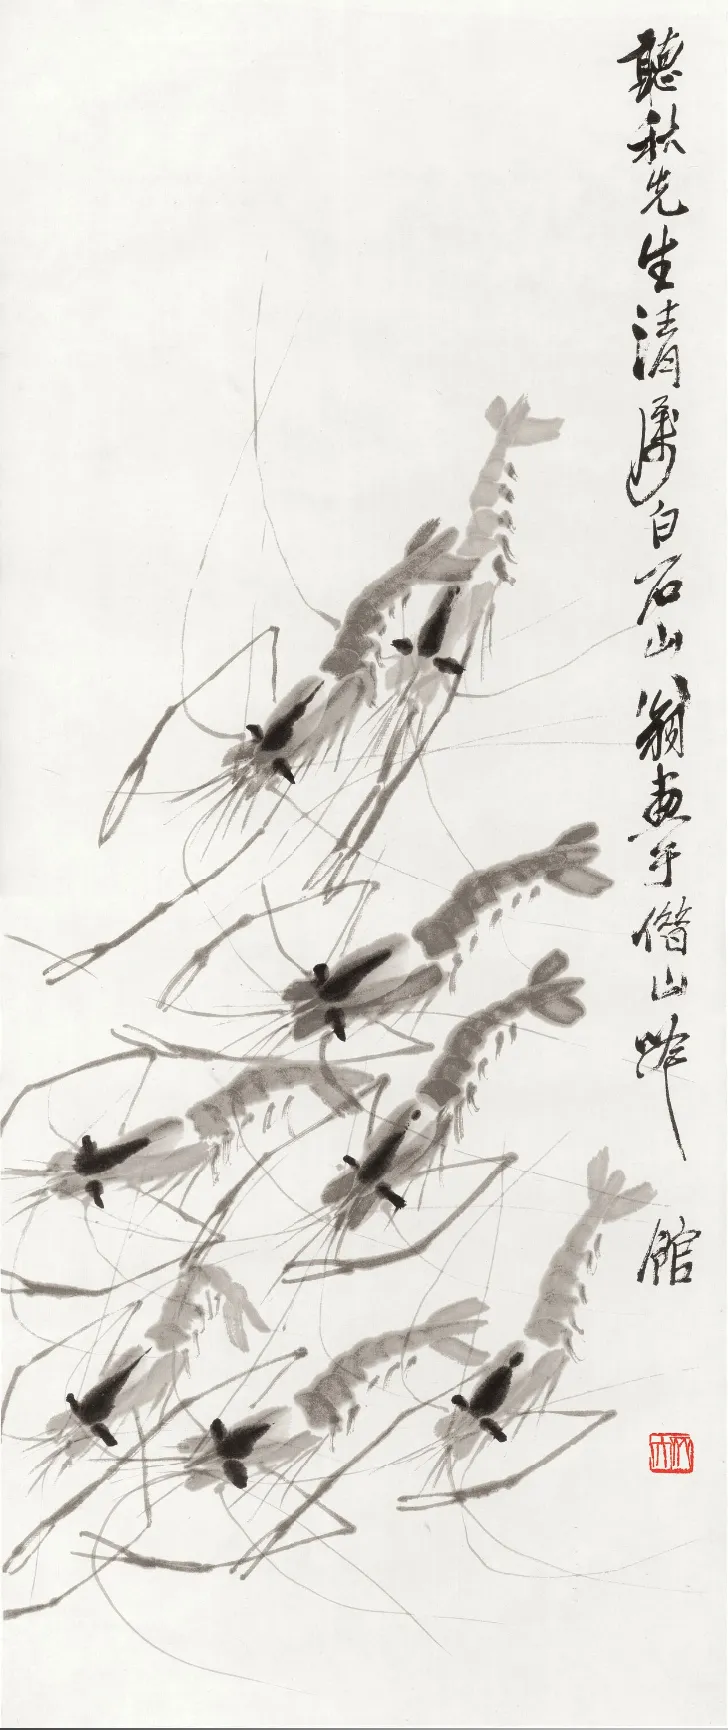 聽秋先生清屬白石山翁畫于借山吟館